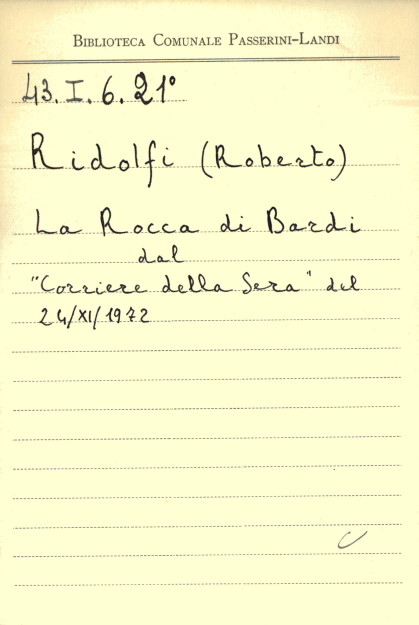 BIBLIOTECA COMUNALE PASSERINI-LANDI
43. I. 6. 21°
Ridolfi (Roberto)
La Rocca di Bardi
dal
"Corriere della Sera" del
24/XI/1972